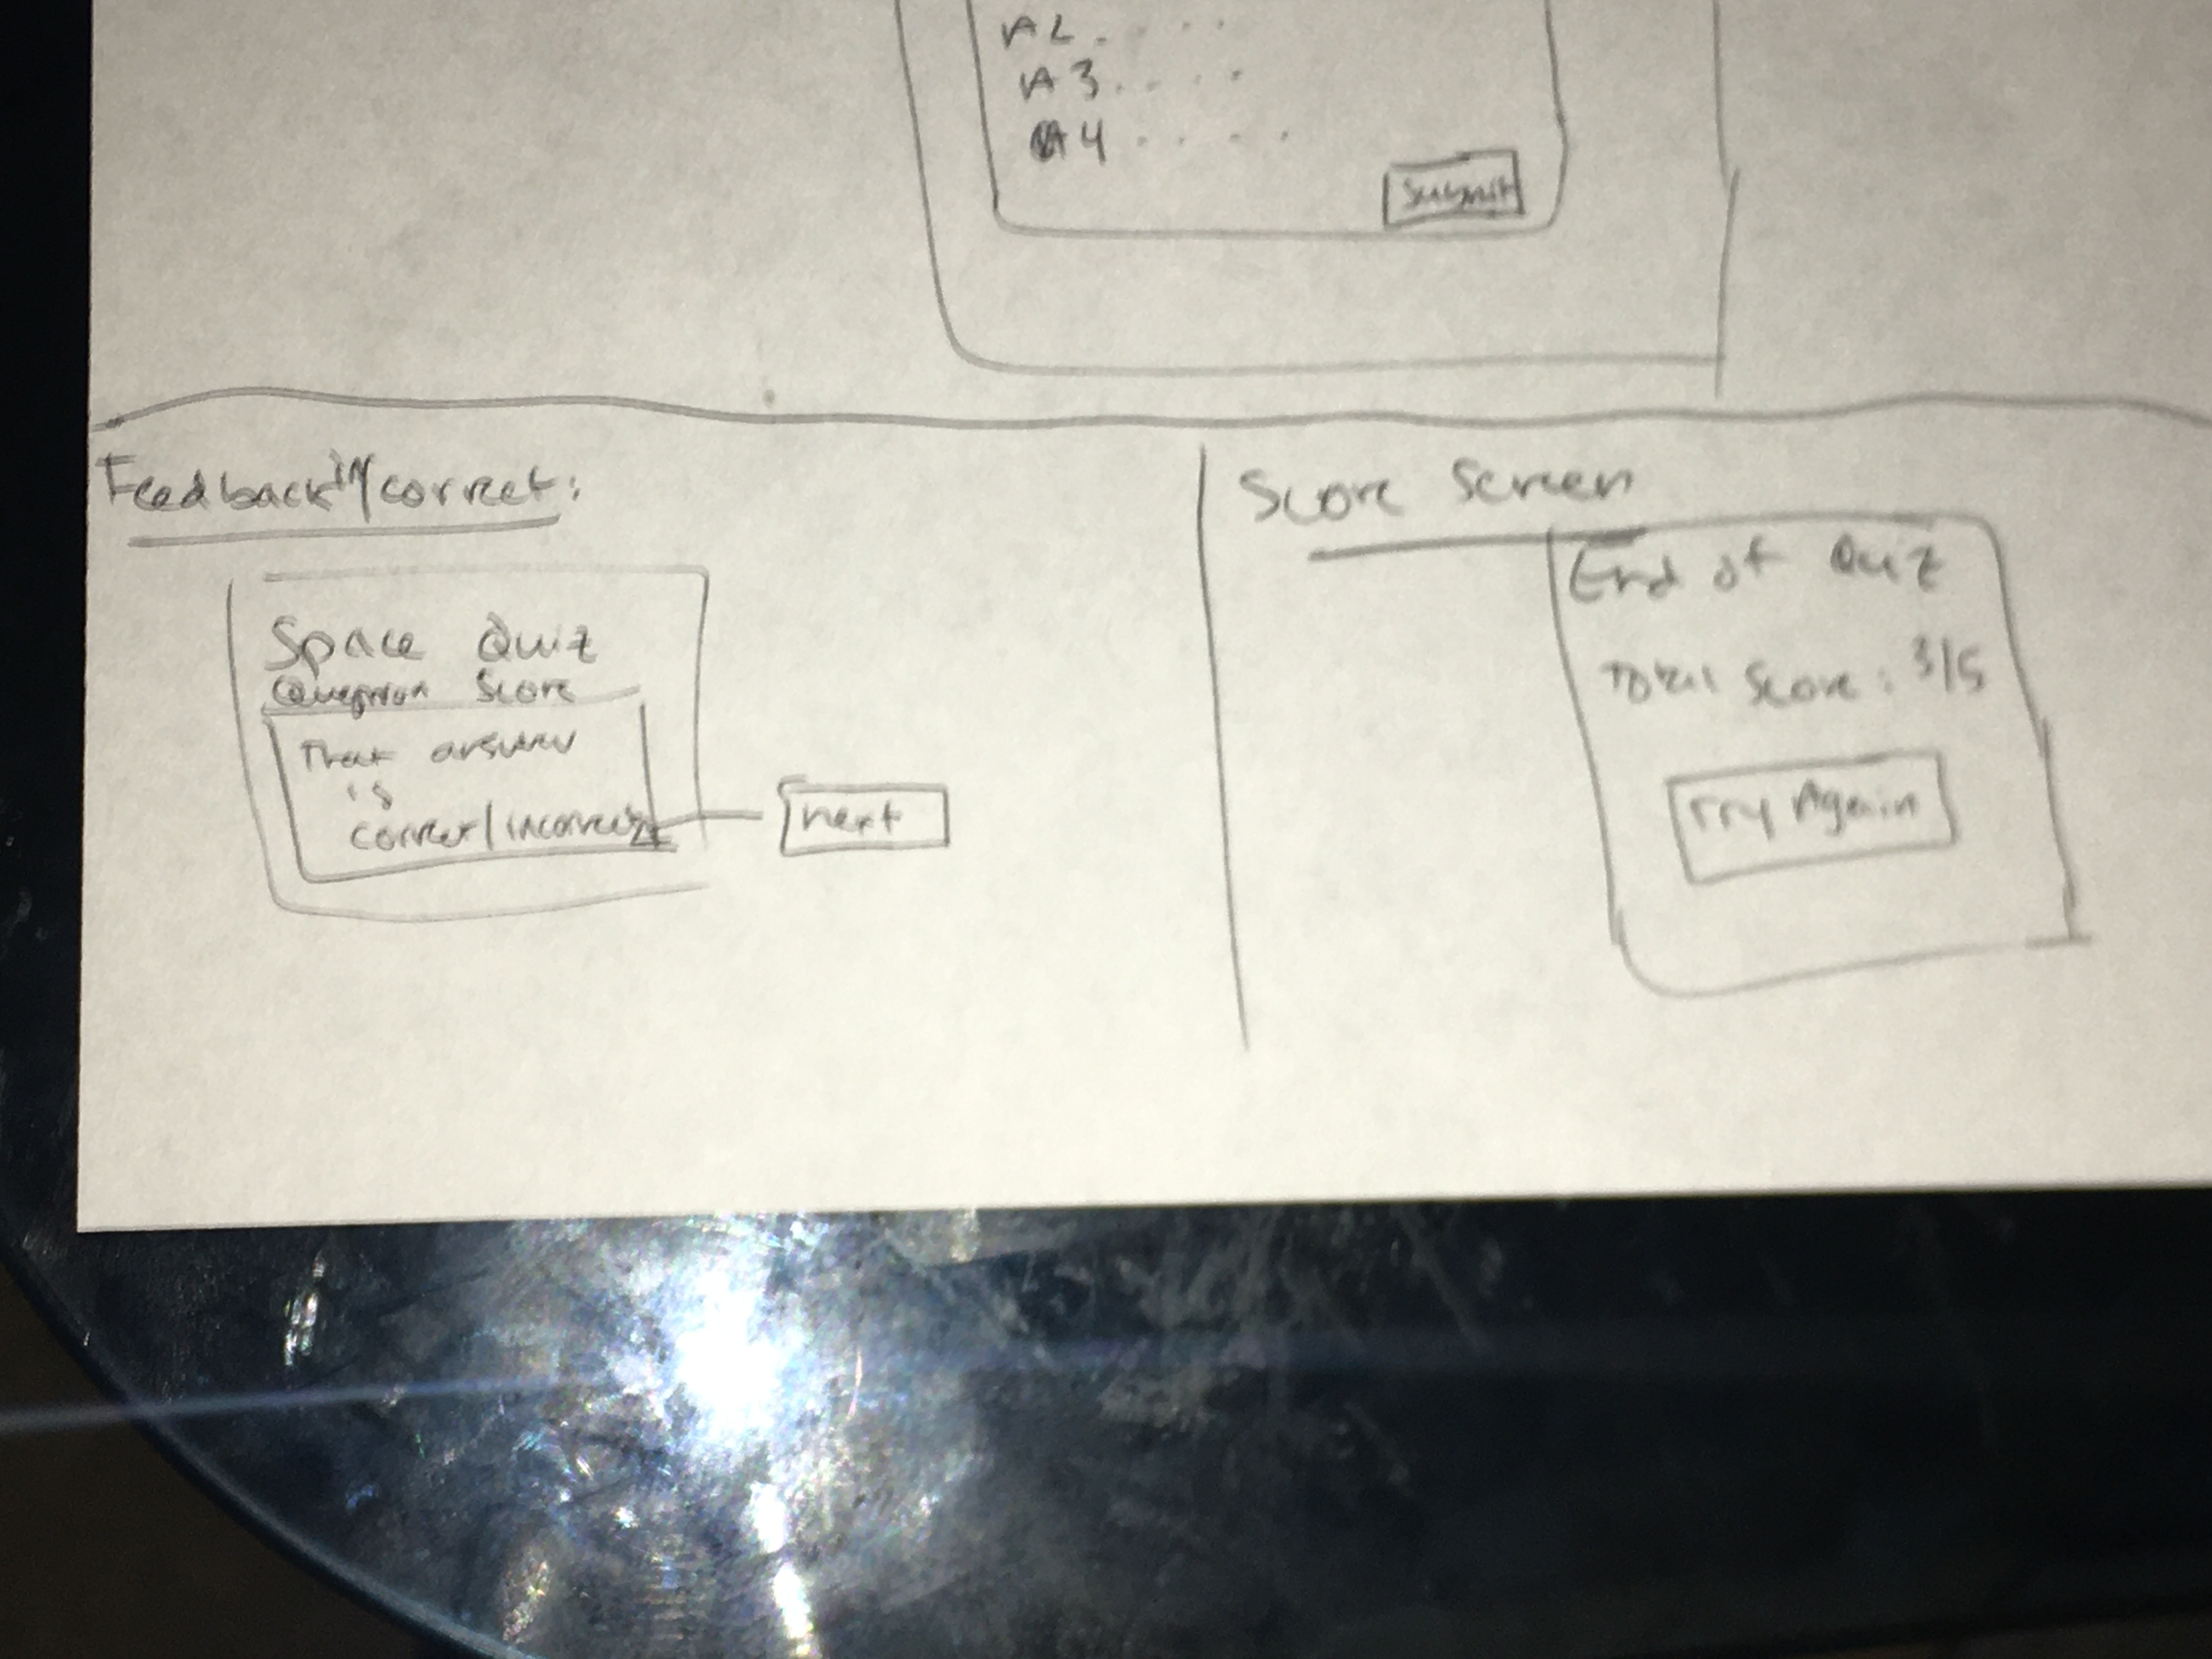 A2 . . . .
A3 . . . .
A4 . . . .
Submit
Feedback in/correct:
Space Quiz
Question Score
That answer
is
correct/incorrect
next
Score Screen
End of Quiz
Total Score: 3/5
Try Again